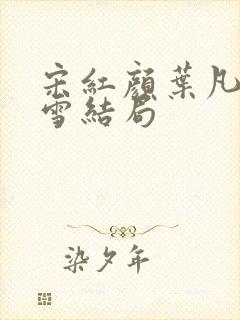 宋紅顔葉凡
雪結局
染夕年